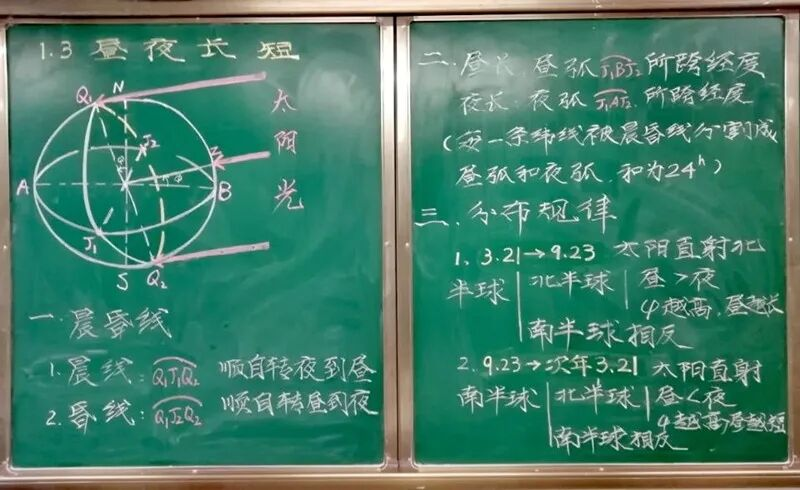 1.3 昼夜长短
Q₁ N
太阳光
J₂
φ
A
B
J₁
S Q₂
一.晨昏线
1.晨线:Q₁J₁Q₂ 顺自转夜到昼
2.昏线:Q₁J₂Q₂ 顺自转昼到夜
二.昼长:昼弧J₁BJ₂所跨经度
夜长:夜弧J₁AJ₂所跨经度
(每一条纬线被晨昏线分割成
昼弧和夜弧.和为24ʰ)
三.分布规律
1. 3.21→9.23 太阳直射北
半球|北半球|昼>夜
φ越高,昼越长
南半球相反
2. 9.23→次年3.21 太阳直射
南半球|北半球|昼<夜
φ越高,昼越短
南半球相反